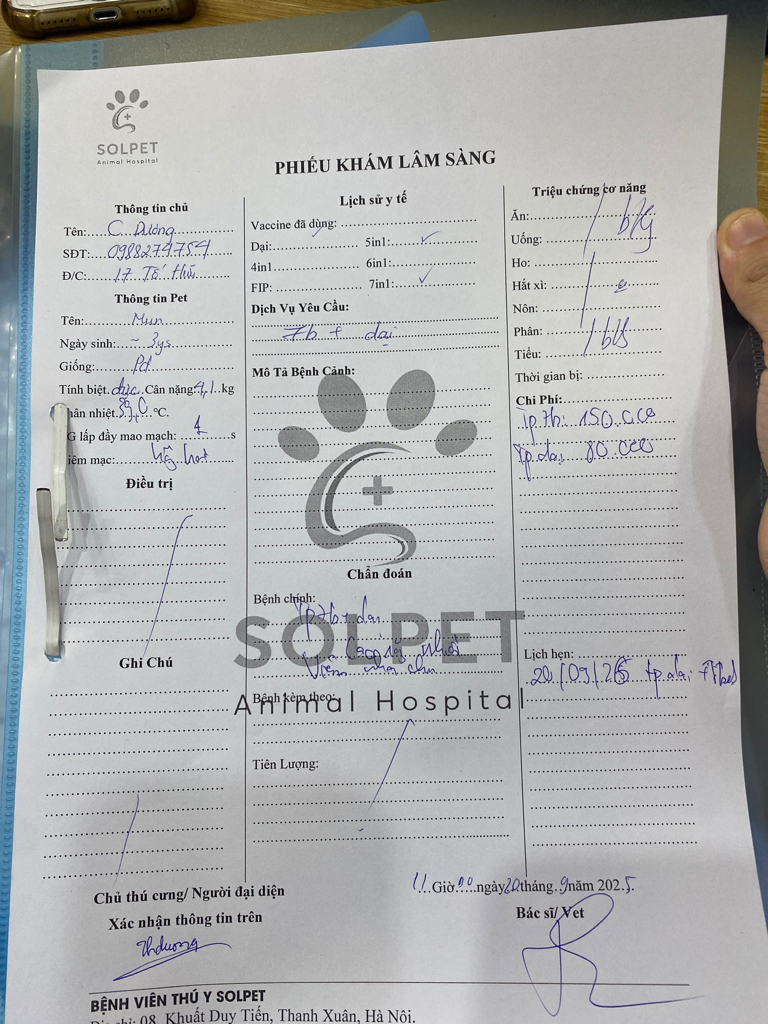 SOLPET
Animal Hospital
PHIẾU KHÁM LÂM SÀNG
Thông tin chủ
Tên: C. Dương
SĐT: 0988274754
Đ/C: 17 Tố Hữu
Thông tin Pet
Tên: Mun
Ngày sinh: ~ 3ys
Giống: Pd
Tính biệt: đực Cân nặng: 4,1 kg
hân nhiệt: °C.
G lấp đầy mao mạch: 1 s
iêm mạc: hồng hạt
Điều trị
Ghi Chú
Lịch sử y tế
Vaccine đã dùng:
Dại: 5in1: ✓
4in1 6in1:
FIP: 7in1: ✓
Dịch Vụ Yêu Cầu:
7b + dại
Mô Tả Bệnh Cảnh:
Chẩn đoán
Bệnh chính:
Tp 7b + dại
Viêm nha chu
SOLPET
Bệnh kèm theo:
Animal Hospital
Tiên Lượng:
Triệu chứng cơ năng
Ăn:
Uống: b/g
Ho:
Hắt xì:
Nôn:
Phân:
Tiểu:
Thời gian bị:
Chi Phí:
Tp 7b: 150.000
Tp dại: 80.000
Lịch hẹn:
20/09/26 tp dại 7b
11 Giờ 00 ngày 20 tháng 9 năm 2025.
Chủ thú cưng/ Người đại diện
Xác nhận thông tin trên
Thduong
Bác sĩ/ Vet
BỆNH VIỆN THÚ Y SOLPET
Địa chỉ: 08, Khuất Duy Tiến, Thanh Xuân, Hà Nội.